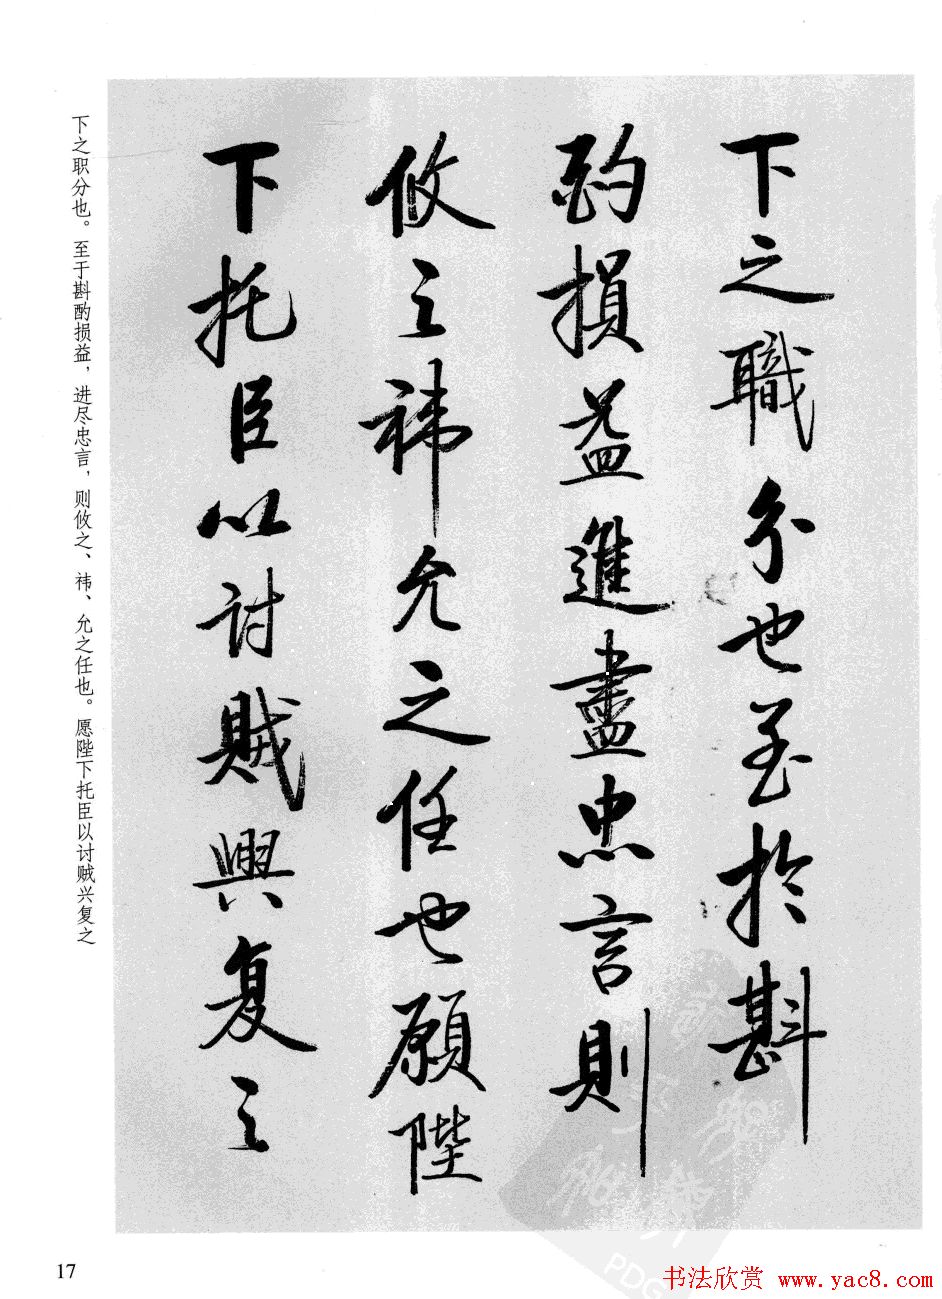 下之職分也至於斟
酌損益進盡忠言則
攸之禕允之任也願陛
下托臣以討賊興复之
下之职分也。至于斟酌损益，进尽忠言，则攸之、祎、允之任也。愿陛下托臣以讨贼兴复之
17
书法欣赏 www.yac8.com